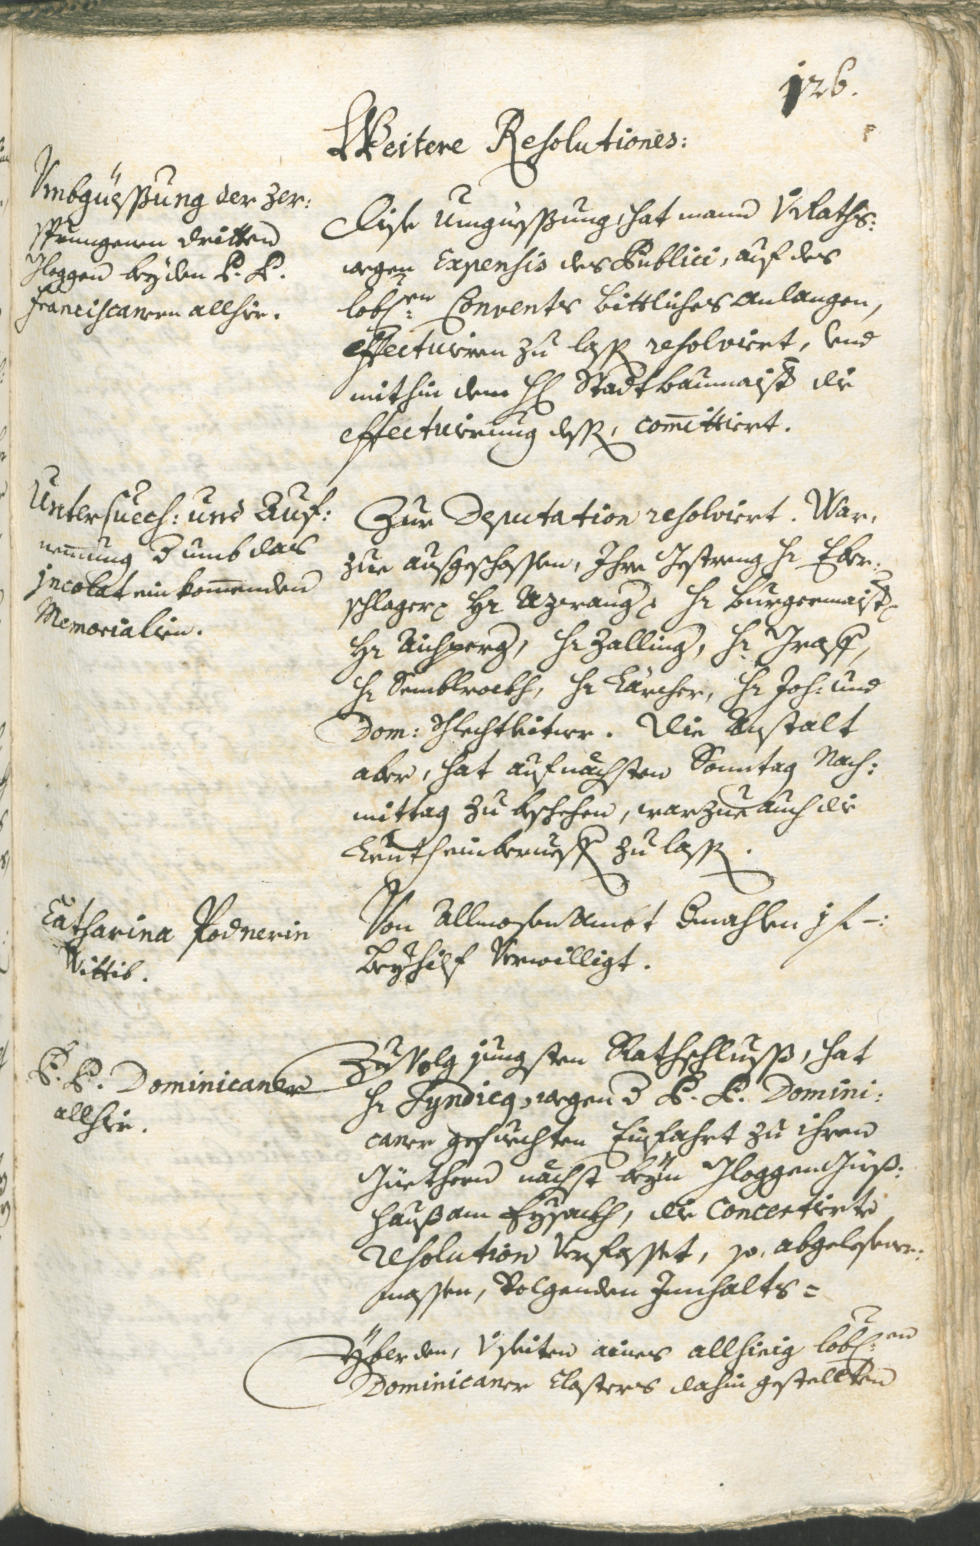 126.
Weitere Resolutiones:
Umbgüessung der zer:
sprungenen dritten
Gloggen bey den P. P.
Franciscanern allhie.
Dise Umgüessung, hat mann V. Raths:
wegen Expensis des Publici, auf des
lobl:en Convents bittliches anlangen,
effectuiren zu lassen resolviert, und
mithin dem H: Stadtbaumaister die
effectuierung dessen, committiert.
Untersuech: und Auf:
nemung d umb das
jncolat ein komenden
Memorialien.
Zur Deputation resolviert. War,
zue ausgeschossen, Ihre Gestreng Hr Eber:
schlager, Hr Azwanger, Hr Burgermaister,
Hr Aichperg, Hr Zallinger, Hr Grass,
Hr Semblrockh, Hr Kärcher, Hr Joh: und
Dom: Schlechtleitner. Die Anstalt
aber, hat auf nächsten Sonntag Nach:
mittag zu beschehen, warzue auch die
Leuth einberueffen zu lassen.
Catharina Podnerin
Wittib.
Von Allmosen Ambt Emahlen j f –:
Beyhilf Verwilligt.
P. P. Dominicaner
allhie.
Zu Volg jüngsten Rathschluss, hat
Hr Syndicq, wegen d P. P. Domini:
caner gesuechten Einfahrt zu ihren
Güethern nächst beym Gloggen Güeß:
hauß am Eysackh, die concertierte
resolution Verfasset, so, abgelesner:
massen, Volgenden Innhalts =
Yber den, Vseiten aines allhieig lobl:en
Dominicaner Closters dahin gestellten